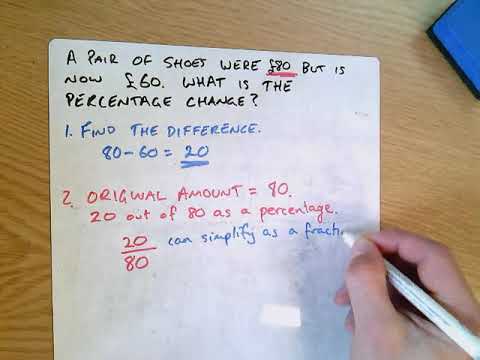 A PAIR OF SHOES WERE £80 BUT IS
NOW £60. WHAT IS THE
PERCENTAGE CHANGE?
1. FIND THE DIFFERENCE.
80-60 = 20
2. ORIGINAL AMOUNT = 80.
20 out of 80 as a percentage.
20 can simplify as a fracti
80